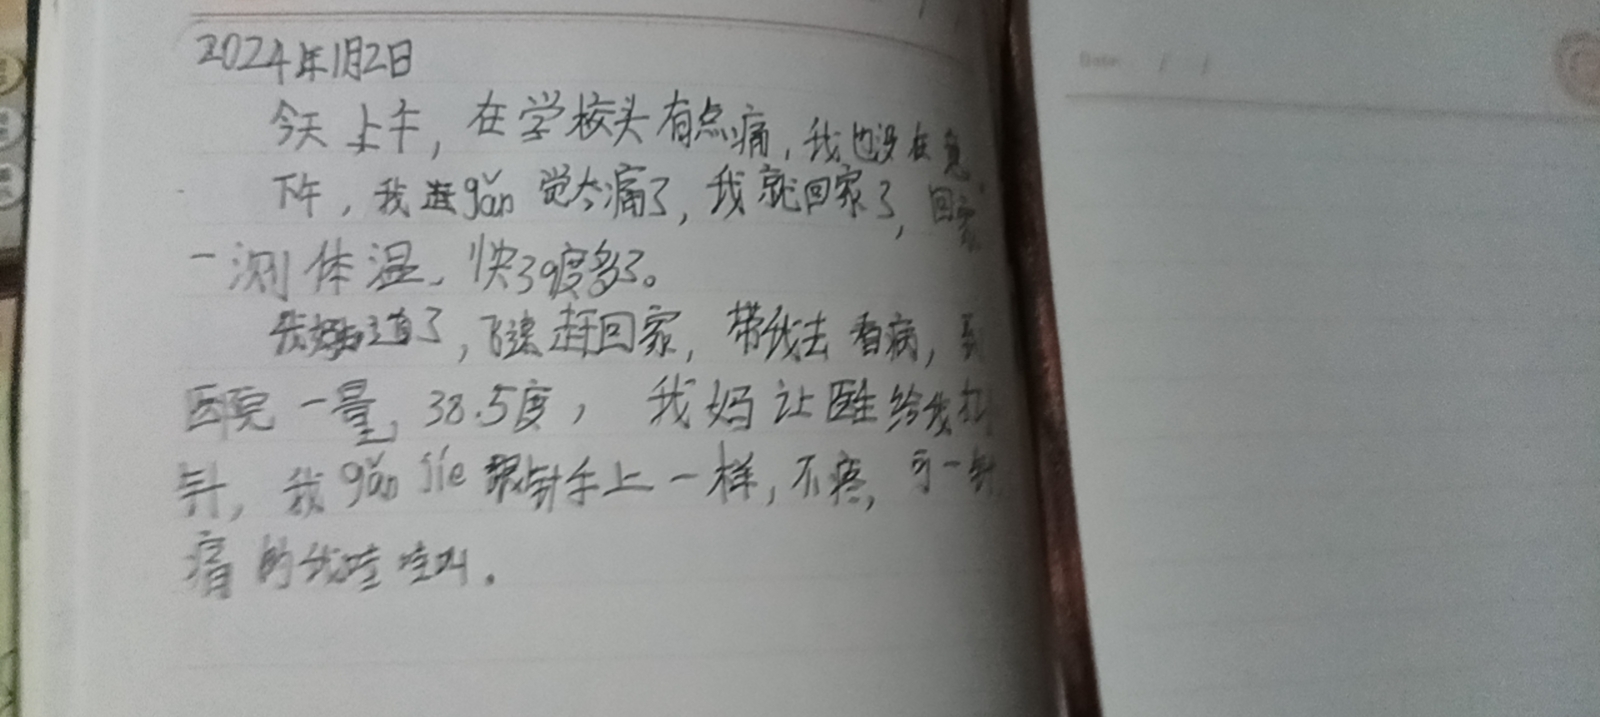 2024年1月2日
今天上午，在学校头有点痛，我也没在意。
下午，我gǎn觉太痛了，我就回家了，回家
一测体温，快39度多了。
我妈知道了，飞速赶回家，带我去看病，到
医院一量，38.5度，我妈让医生给我打
针，我gǎn jíe 跟针手上一样，不疼，可一针
痛的我哇哇叫。
Date: / /